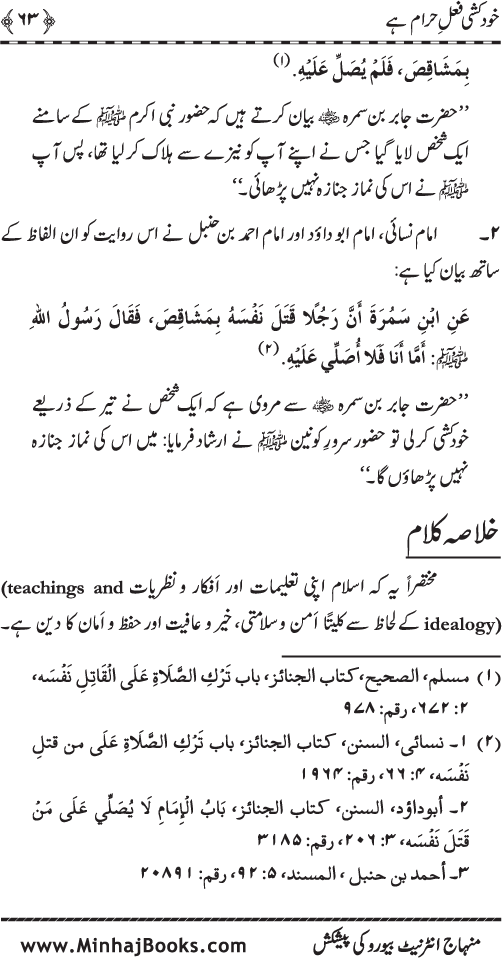 خودکشی فعلِ حرام ہے ﴿۶۳﴾
بِمَشَاقِصَ، فَلَمْ يُصَلِّ عَلَيْهِ.(۱)
’’حضرت جابر بن سمرہ ؓ بیان کرتے ہیں کہ حضور نبی اکرم ﷺ کے سامنے
ایک شخص لایا گیا جس نے اپنے آپ کو نیزے سے ہلاک کر لیا تھا، پس آپ
ﷺ نے اس کی نماز جنازہ نہیں پڑھائی۔‘‘
۲۔ امام نسائی، امام ابو داؤد اور امام احمد بن حنبل نے اس روایت کو ان الفاظ کے
ساتھ بیان کیا ہے:
عَنِ ابْنِ سَمُرَةَ أَنَّ رَجُلًا قَتَلَ نَفْسَهُ بِمَشَاقِصَ، فَقَالَ رَسُولُ اللهِ
ﷺ: أَمَّا أَنَا فَلَا أُصَلِّي عَلَيْهِ.(۲)
’’حضرت جابر بن سمرہ ؓ سے مروی ہے کہ ایک شخص نے تیر کے ذریعے
خودکشی کر لی تو حضور سرورِ کونین ﷺ نے ارشاد فرمایا: میں اس کی نماز جنازہ
نہیں پڑھاؤں گا۔‘‘
خلاصہ کلام
مختصراً یہ کہ اسلام اپنی تعلیمات اور اَفکار و نظریات (teachings and
idealogy) کے لحاظ سے کلیتًا اَمن و سلامتی، خیر و عافیت اور حفظ و اَمان کا دین ہے۔
(۱) مسلم، الصحیح، کتاب الجنائز، باب تَرْكِ الصَّلَاةِ عَلَى الْقَاتِلِ نَفْسَه،
۲: ۶۷۲، رقم: ۹۷۸
(۲) ۱۔ نسائی، السنن، کتاب الجنائز، باب تَرْكِ الصَّلَاةِ عَلَى من قتلِ
نَفْسَه، ۴: ۶۶، رقم: ۱۹۶۴
۲۔ أبوداؤد، السنن، کتاب الجنائز، بَابُ الْإِمَامِ لَا يُصَلِّي عَلَى مَنْ
قَتَلَ نَفْسَه، ۳: ۲۰۶، رقم: ۳۱۸۵
۳۔ أحمد بن حنبل ، المسند، ۵: ۹۲، رقم: ۲۰۸۹۱
منہاج انٹرنیٹ بیورو کی پیشکش www.MinhajBooks.com